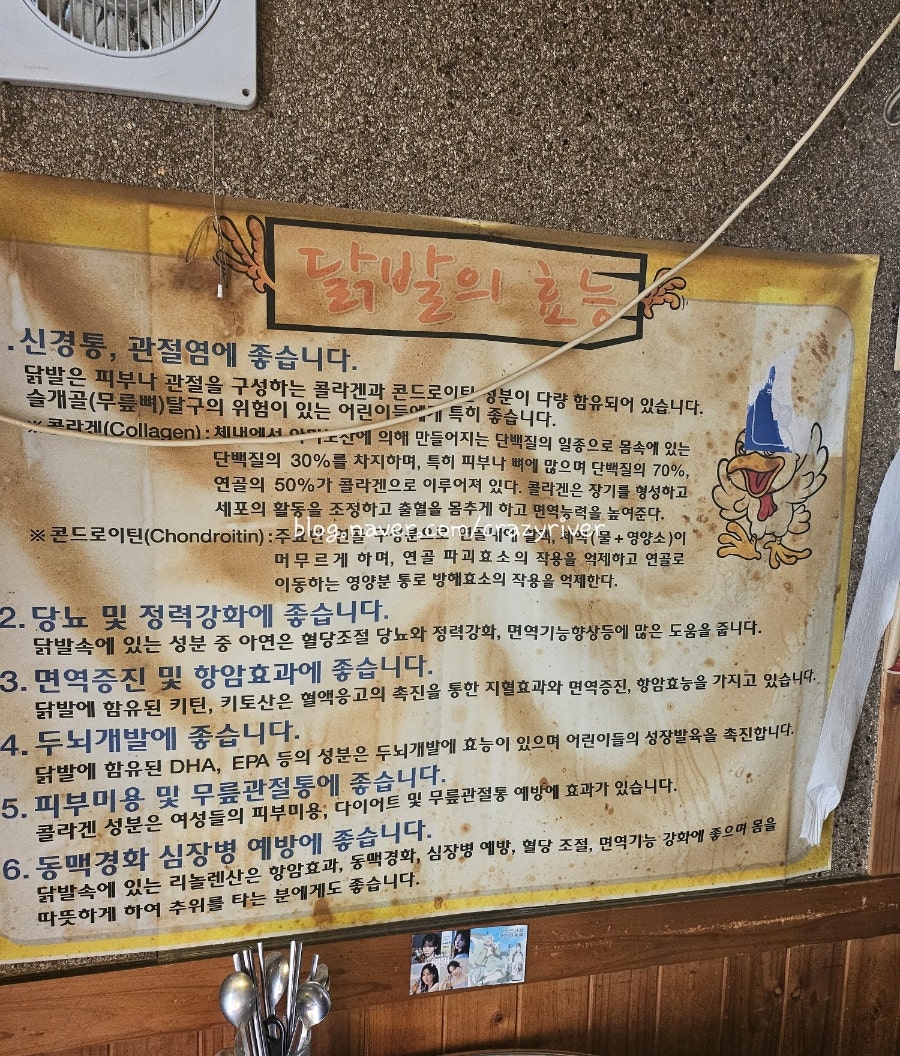 닭발의 효능
. 신경통, 관절염에 좋습니다.
닭발은 피부나 관절을 구성하는 콜라겐과 콘드로이틴 성분이 다량 함유되어 있습니다.
슬개골(무릎뼈)탈구의 위험이 있는 어린이들에게 특히 좋습니다.
※ 콜라겐(Collagen) : 체내에서 아미노산에 의해 만들어지는 단백질의 일종으로 몸속에 있는
단백질의 30%를 차지하며, 특히 피부나 뼈에 많으며 단백질의 70%,
연골의 50%가 콜라겐으로 이루어져 있다. 콜라겐은 장기를 형성하고
세포의 활동을 조정하고 출혈을 몸추게 하고 면역능력을 높여준다.
blog.naver.com/crazyriver
※ 콘드로이틴(Chondroitin) : 주로 연골의 구성분으로 만들며 체액(물+영양소)이
머무르게 하며, 연골 파괴효소의 작용을 억제하고 연골로
이동하는 영양분 통로 방해효소의 작용을 억제한다.
2. 당뇨 및 정력강화에 좋습니다.
닭발속에 있는 성분 중 아연은 혈당조절 당뇨와 정력강화, 면역기능향상등에 많은 도움을 줍니다.
3. 면역증진 및 항암효과에 좋습니다.
닭발에 함유된 키틴, 키토산은 혈액응고의 촉진을 통한 지혈효과와 면역증진, 항암효능을 가지고 있습니다.
4. 두뇌개발에 좋습니다.
닭발에 함유된 DHA, EPA 등의 성분은 두뇌개발에 효능이 있으며 어린이들의 성장발육을 촉진합니다.
5. 피부미용 및 무릎관절통에 좋습니다.
콜라겐 성분은 여성들의 피부미용, 다이어트 및 무릎관절통 예방에 효과가 있습니다.
6. 동맥경화 심장병 예방에 좋습니다.
닭발속에 있는 리놀렌산은 항암효과, 동맥경화, 심장병 예방, 혈당 조절, 면역기능 강화에 좋으며 몸을
따뜻하게 하여 추위를 타는 분에게도 좋습니다.